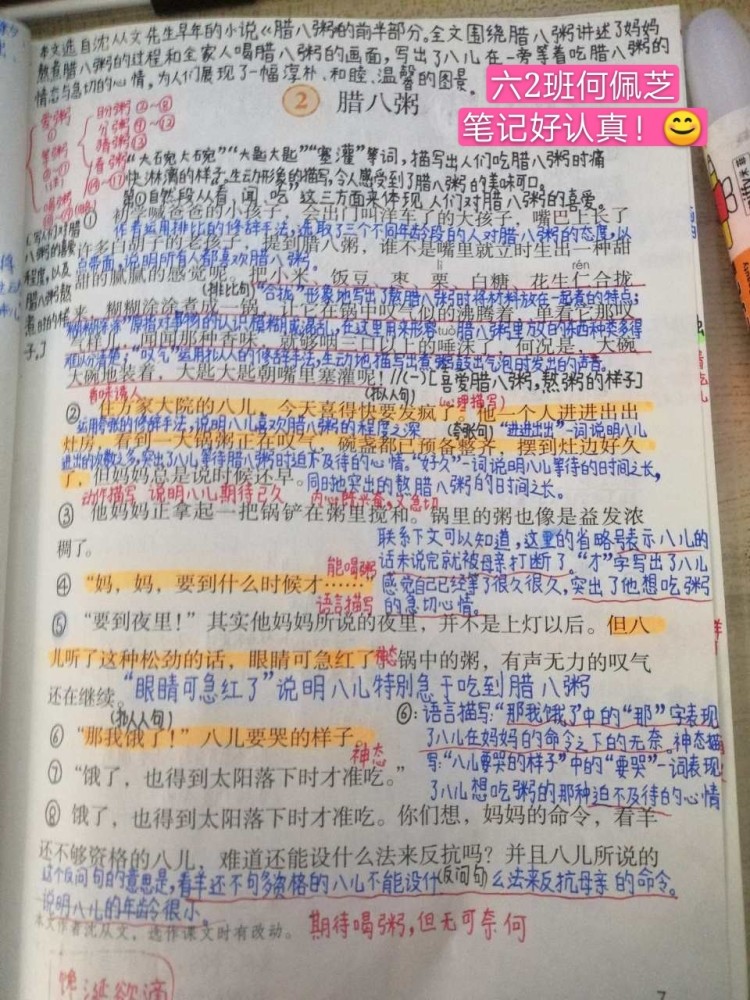 本文选自沈从文先生早年的小说《腊八粥》的前半部分。全文围绕腊八粥讲述了妈妈
熬煮腊八粥的过程和全家人喝腊八粥的画面，写出了八儿在一旁等着吃腊八粥的
情态与急切的心情，为人们展现了一幅淳朴、和睦、温馨的图景。
六2班何佩芝
笔记好认真！😊
② 腊八粥
盼粥②~⑧
分粥
猜粥
看粥
"大碗大碗""大匙大匙""塞灌"等词，描写出人们吃腊八粥时痛
快淋漓的样子，生动形象的描写，令人感受到了腊八粥的美味可口。
第①自然段从看、闻、吃"这三方面来体现人们对腊八粥的喜爱。
① 初学喊爸爸的小孩子，会出门叫洋车了的大孩子，嘴巴上长了
作者运用排比的修辞手法，选取了三个不同年龄段的人对腊八粥的态度，以
许多白胡子的老孩子，提到腊八粥，谁不是嘴里就立时生出一种甜
点带面，说明所有人都喜欢腊八粥。
lì rén
甜的腻腻的感觉呢。把小米、饭豆、枣、栗、白糖、花生仁合拢
(排比句)"合拢"形象地写出了熬腊八粥时将材料放在一起煮的特点；
来，糊糊涂涂煮成一锅，让它在锅中叹气似的沸腾着，单看它那叹
"糊糊涂涂"原指对事物的认识模糊或混乱，在这里用来形容腊八粥里放的东西种类多得
tuò
气样儿，闻闻那种香味，就够咽三口以上的唾沫了，何况是，大碗
难以分清楚；"叹气"运用拟人的修辞手法，生动地描写出煮粥鼓出气泡时发出的声音。
大碗地装着，大匙大匙朝嘴里塞灌呢！//(一)[喜爱腊八粥，熬粥的样子]
(拟人句)
(心理描写)
② 住方家大院的八儿，今天喜得快要发疯了。他一个人进进出出
运用夸张的修辞手法，说明八儿喜欢腊八粥的程度之深 (夸张句)"进进出出"一词说明八儿
灶房，看到一大锅粥正在叹气，碗盏都已预备整齐，摆到灶边好久
进出的次数之多，突出了八儿等待腊八粥时迫不及待的心情。"好久"一词说明八儿等待的时间之长，
了，但妈妈总是说时候还早。
同时也突出的熬腊八粥的时间之长。
动作描写 说明八儿期待已久
③ 他妈妈正拿起一把锅铲在粥里搅和。锅里的粥也像是益发浓
稠了。
联系下文可以知道，这里的省略号表示八儿的
话未说完就被母亲打断了。"才"字写出了八儿
感觉自己已经等了很久很久，突出了他想吃粥
的急切心情。
能喝粥
④ "妈，妈，要到什么时候才……"
语言描写
⑤ "要到夜里！"其实他妈妈所说的夜里，并不是上灯以后。但八
儿听了这种松劲的话，眼睛可急红了。锅中的粥，有声无力的叹气
神态
还在继续。"眼睛可急红了"说明八儿特别急于吃到腊八粥
(拟人句)
⑥ "那我饿了！"八儿要哭的样子。
神态
⑥：语言描写："那我饿了"中的"那"字表现
了八儿在妈妈的命令之下的无奈。神态描
写："八儿要哭的样子"中的"要哭"一词表现
了八儿想吃粥的那种迫不及待的心情
⑦ "饿了，也得到太阳落下时才准吃。"
⑧ 饿了，也得到太阳落下时才准吃。你们想，妈妈的命令，看羊
还不够资格的八儿，难道还能设什么法来反抗吗？并且八儿所说的
这个反问句的意思是，看羊还不够资格的八儿不能设什(反问句)么法来反抗母亲的命令。
说明八儿的年龄很小。
本文作者沈从文，选作课文时有改动。
期待喝粥，但无可奈何
馋涎欲滴
7